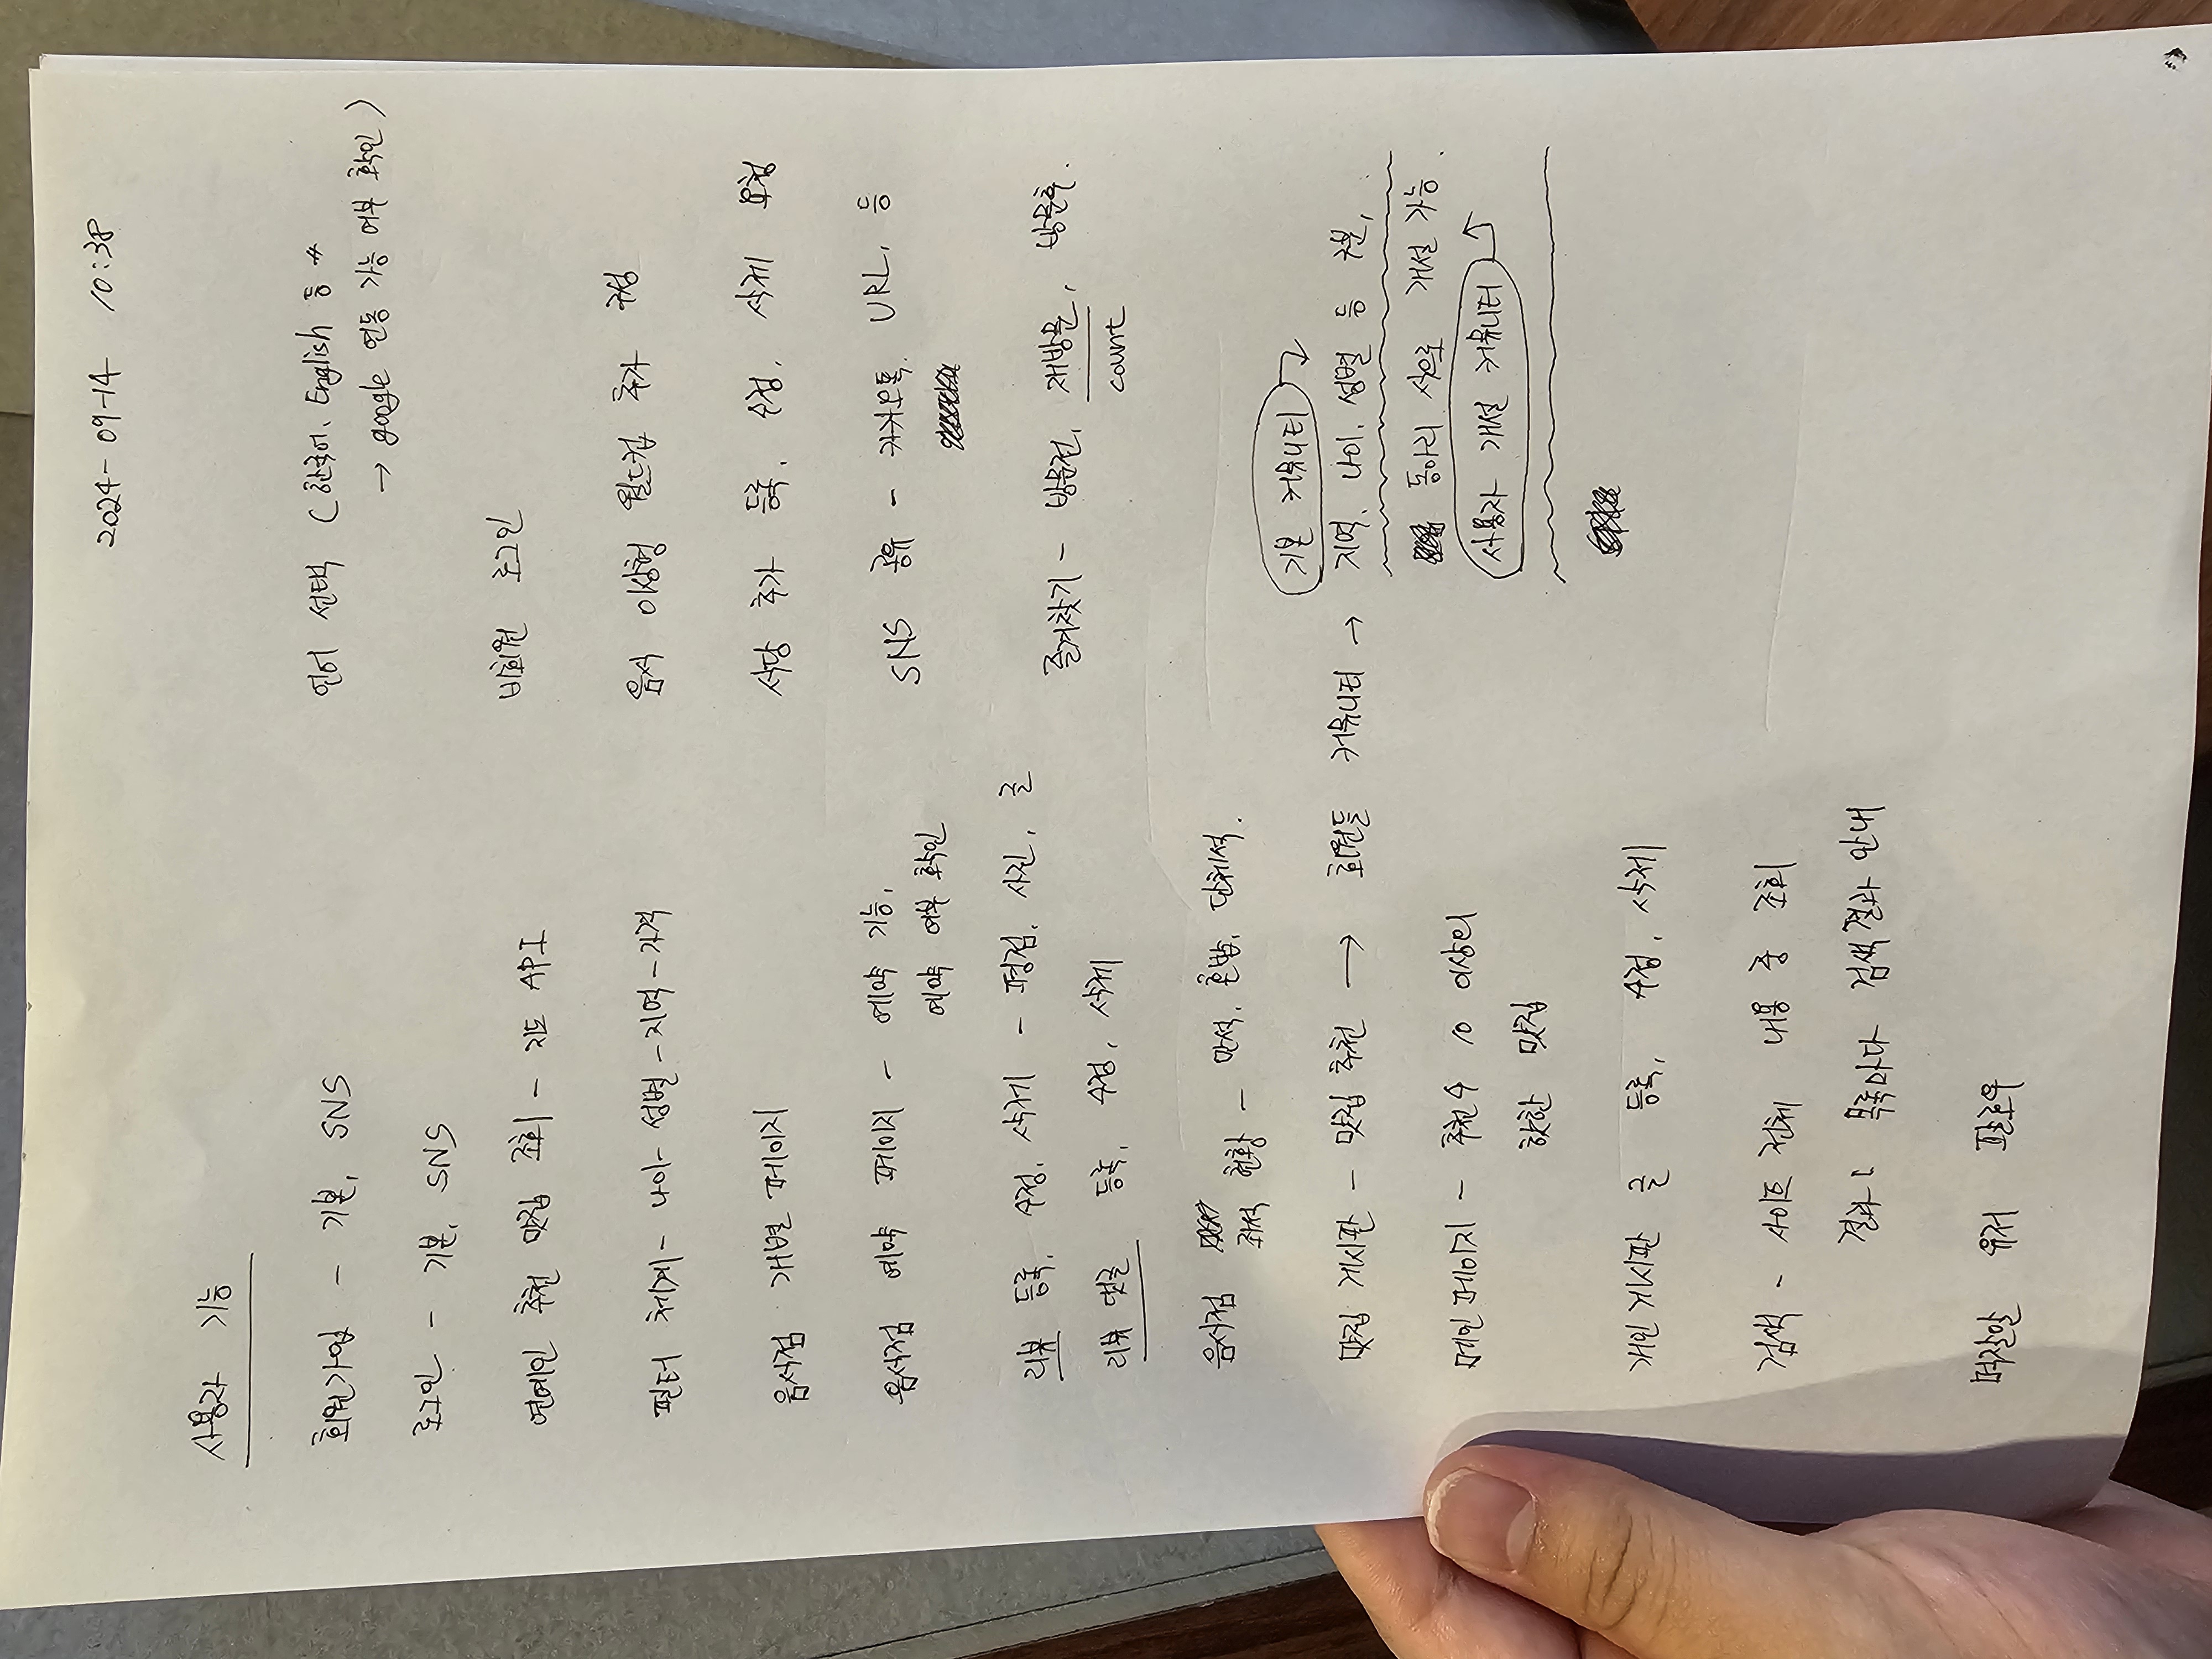 2024-09-14 10:38
사용자 기능
회원가입 - 기본, SNS
로그인 - 기본, SNS
연예인 추천 맛집 조회 - 지도 API
필터 체계 - 나이 - 성별 - 지역 - 가격
음식점 개별 페이지
음식점 예약 페이지 - 예약 기능,
예약 여부 확인
리뷰 등록, 수정, 삭제 - 평점, 사진, 글
리뷰 댓글 등록, 수정, 삭제
음식점 좌석 현황 - 만석, 혼밥, 단체석.
맛집 게시판 - 맛집 추천 → 회원들 커뮤니티 →
메인 페이지 - 추천수 10 이상의
핫한 맛집
개인 게시판 글 등록, 수정, 삭제
검색 - 사이트 전체 내용 중 조회
결과: 목록마다 검색결과 안내
먹잘알 유저 팔로우
언어 선택 (한국어, English 등
→ google 연동 가능 여부 확인)
비회원 로그인
음식 이상형 월드컵 추가 구성
식당 추가 등록, 수정, 삭제 요청
SNS 공유 - 카카오톡, URL, 등
즐겨찾기 - 방문전, 재방문, 방문후.
count
기본 커뮤니티
지역, 나이, 성별 등 구분,
동아리 식으로 개설 가능.
사용자 개설 커뮤니티